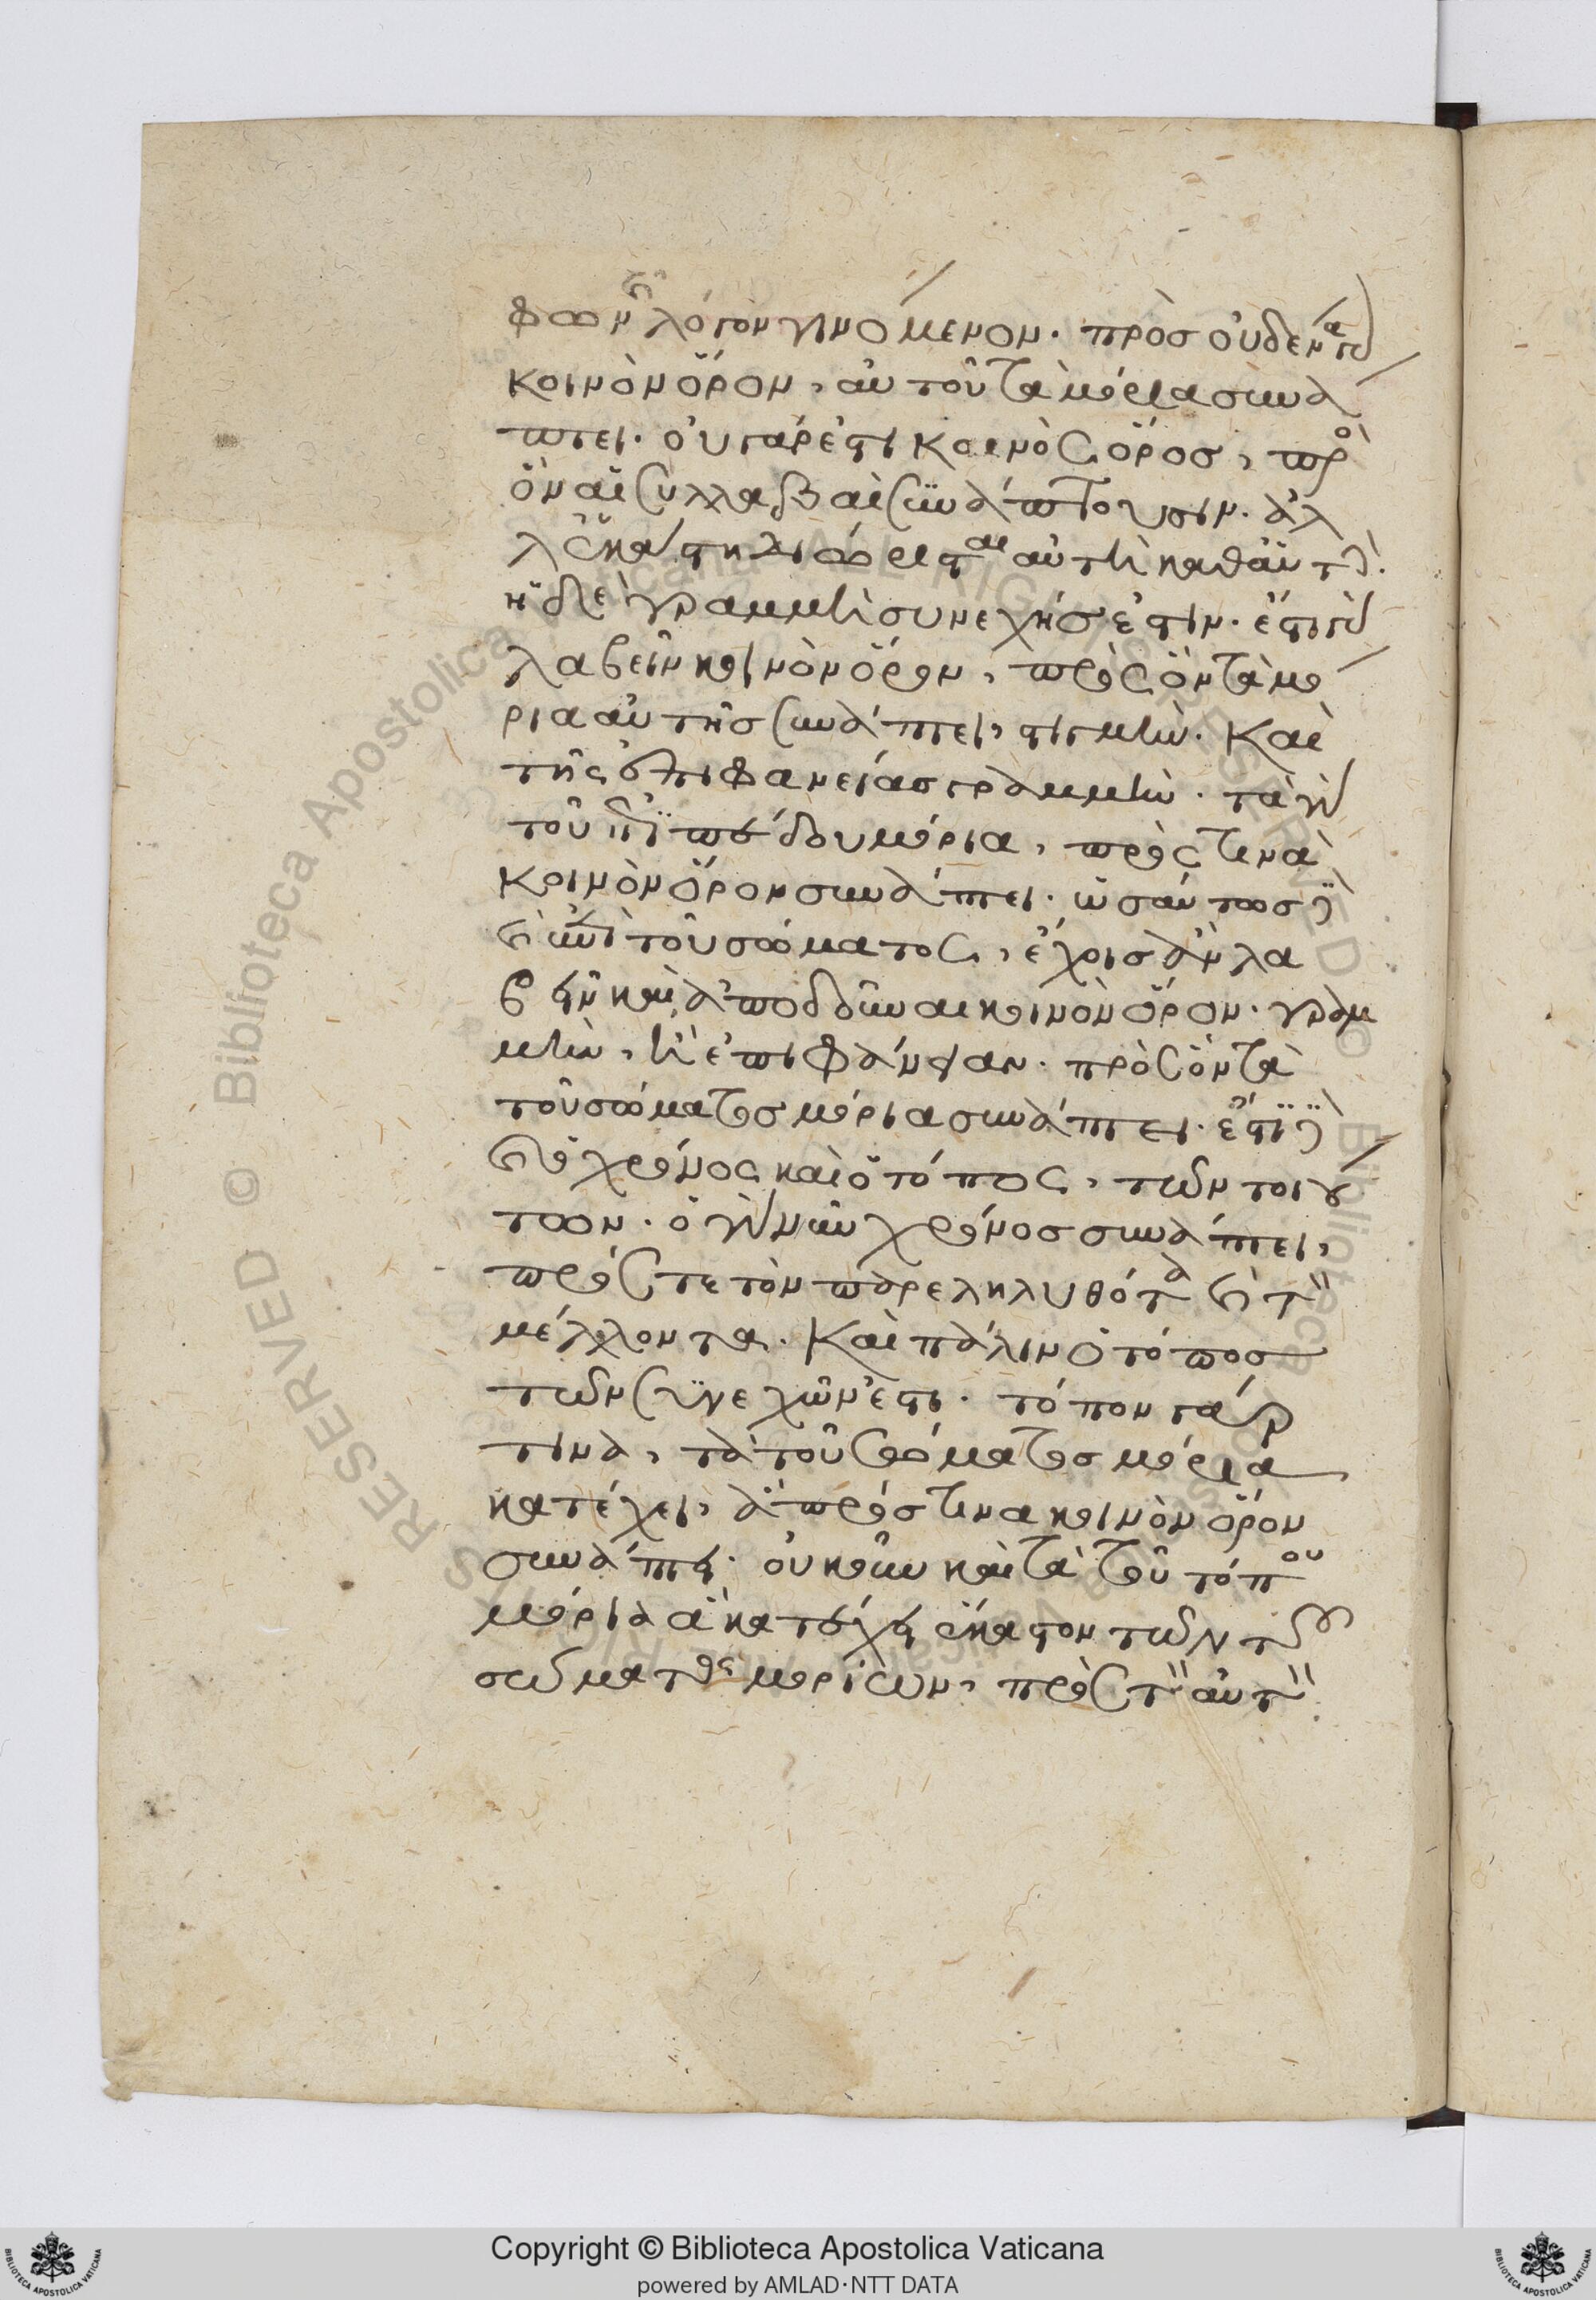 φωνῆς λόγον γινόμενον· πρὸς οὐδένα γὰρ
κοινὸν ὅρον, αὐτοῦ τὰ μόρια συνά
πτει· οὐ γάρ ἐστι κοινὸς ὅρος, πρὸς
ὃν αἱ συλλαβαὶ συνάπτουσιν· ἀλ
λ' ἑκάστη διώρισται αὐτὴ καθ' αὑτήν·
ἡ δὲ γραμμὴ συνεχής ἐστιν· ἔστι γὰρ
λαβεῖν κοινὸν ὅρον, πρὸς ὃν τὰ μό
ρια αὐτῆς συνάπτει, στιγμήν· Καὶ
τῆς ἐπιφανείας γραμμήν· τὰ γὰρ
τοῦ ἐπιπέδου μόρια, πρός τινα
κοινὸν ὅρον συνάπτει· ὡσαύτως δὲ
καὶ ἐπὶ τοῦ σώματος, ἔχοις ἂν λα
βεῖν καὶ ἀποδοῦναι κοινὸν ὅρον· γραμ
μὴν, ἢ ἐπιφάνειαν· πρὸς ὃν τὰ
τοῦ σώματος μόρια συνάπτει· ἔστι δὲ
καὶ ὁ χρόνος καὶ ὁ τόπος, τῶν τοιού
των· ὁ γὰρ νῦν χρόνος συνάπτει,
πρός τε τὸν παρεληλυθότα καὶ τὸν
μέλλοντα· Καὶ πάλιν ὁ τόπος
τῶν συνεχῶν ἐστι· τόπον γάρ
τινα, τὰ τοῦ σώματος μόρια
κατέχει, ἃ πρός τινα κοινὸν ὅρον
συνάπτει· οὐκοῦν καὶ τὰ τοῦ τόπου
μόρια ἃ κατέχει ἕκαστον τῶν τοῦ
σώματος μορίων, πρὸς τὸν αὐτὸν
Copyright © Biblioteca Apostolica Vaticana
powered by AMLAD·NTT DATA